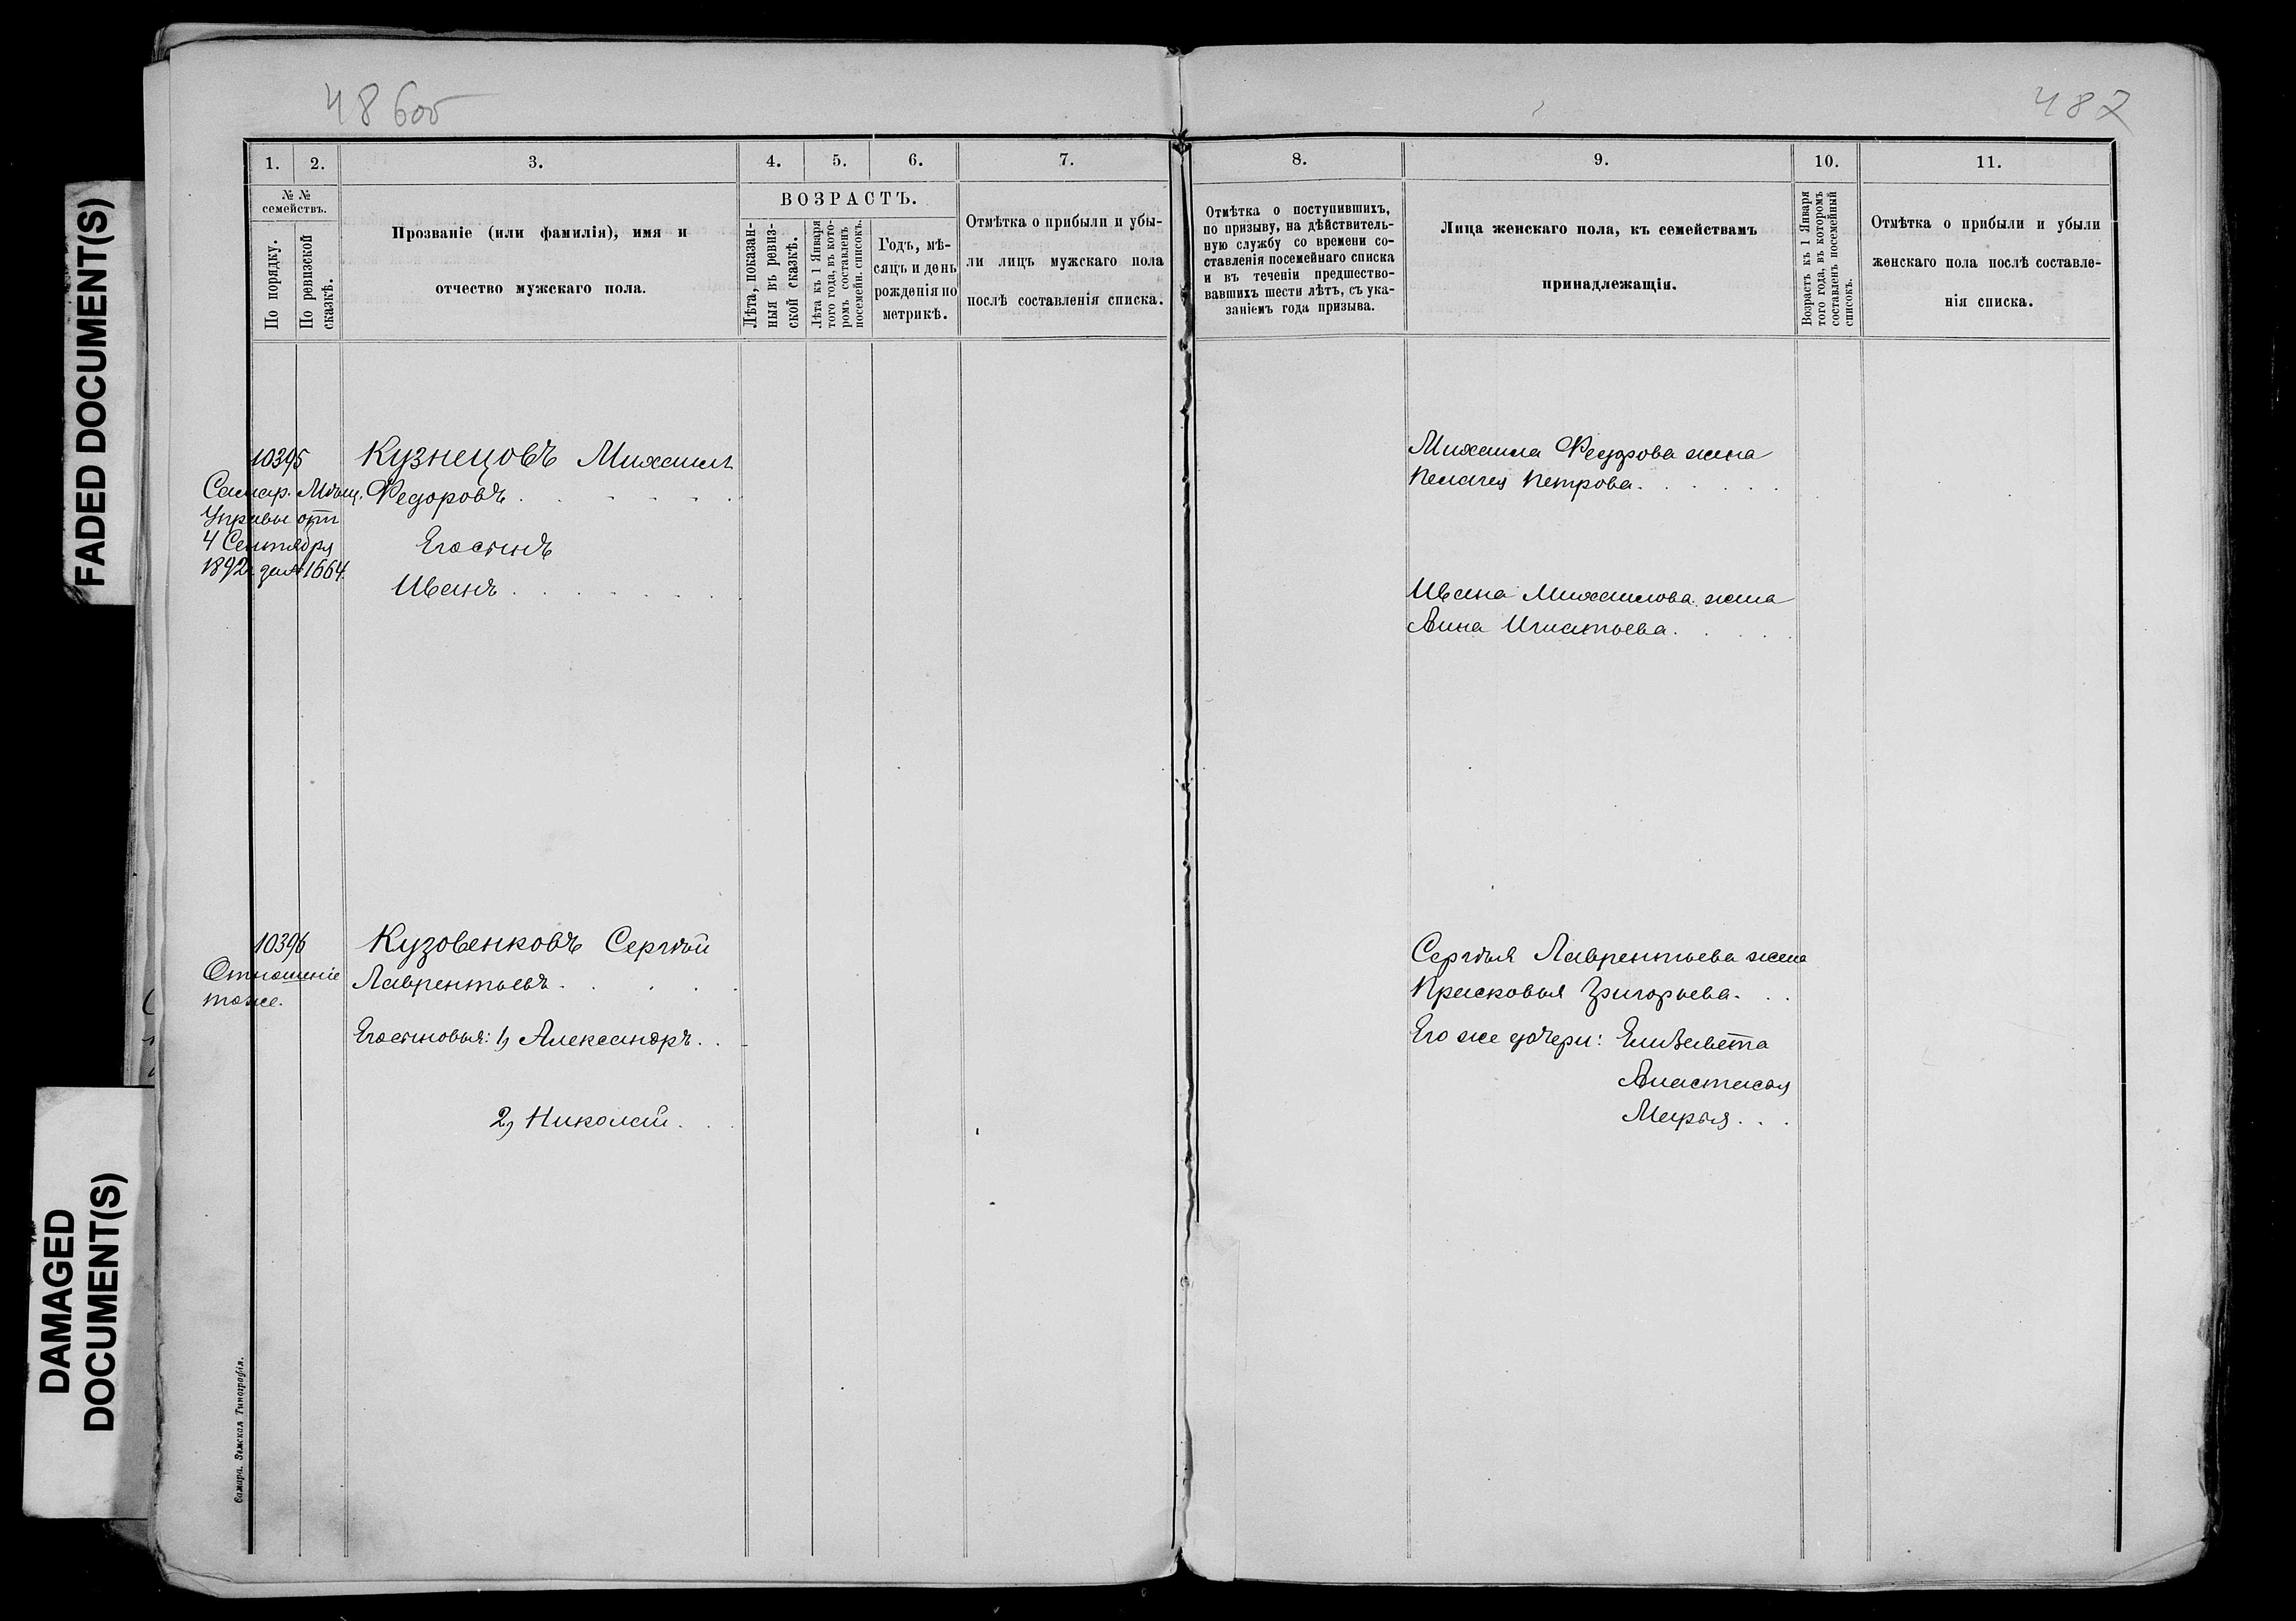 48 6об
487
FADED DOCUMENT(S)
DAMAGED
DOCUMENT(S)
1.
2.
3.
4.
5.
6.
7.
№ №
семействъ.
По порядку.
По ревизской
сказкѣ.
Прозваніе (или фамилія), имя и
отчество мужскаго пола.
ВОЗРАСТЪ.
Лѣта, показан-
ныя въ ревиз-
ской сказкѣ.
Лѣта къ 1 Января
того года, въ кото-
ромъ составленъ
посемейн. списокъ.
Годъ, мѣ-
сяцъ и день
рожденія по
метрикѣ.
Отмѣтка о прибыли и убы-
ли лицъ мужскаго пола
послѣ составленія списка.
10395
Самар. Мѣщ.
Управы от
4 Сентября
1892 г. за № 1664.
Кузнецовъ Михаилъ
Федоровъ . . . . . .
Его сынъ
Иванъ . . . . . . .
10396
Отношеніе
тоже.
Кузовенковъ Сергѣй
Лаврентьевъ . . . .
Его сыновья: 1, Александръ . .
2, Николай . . .
Самара. Земская Типографія.
8.
9.
10.
11.
Отмѣтка о поступившихъ,
по призыву, на дѣйствитель-
ную службу со времени со-
ставленія посемейнаго списка
и въ теченіи предшество-
вавшихъ шести лѣтъ, съ ука-
заніемъ года призыва.
Лица женскаго пола, къ семействамъ
принадлежащіи.
Возрастъ къ 1 Января
того года, въ которомъ
составленъ посемейный
списокъ.
Отмѣтка о прибыли и убыли
женскаго пола послѣ составле-
нія списка.
Михаила Федорова жена
Пелагея Петрова . . . . . .
Ивана Михаилова жена
Анна Игнатьева . . . . .
Сергѣя Лаврентьева жена
Прасковья Григорьева . . .
Его же дочери: Елизавета
Анастасія
Марья . . .